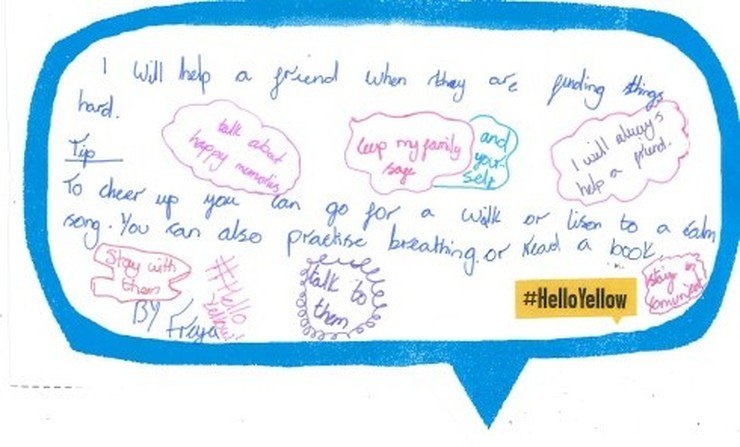 I will help a friend when they are finding things
hard.
talk about
happy memories
keep my family
saye
and
your
self
I will always
help a friend.
Tip
To cheer up you can go for a walk or lisen to a calm
song. You can also practise breathing. or read a book
Stay with
them
#Hello
Yellow
talk to
them
#HelloYellow
stay in
BY Freya